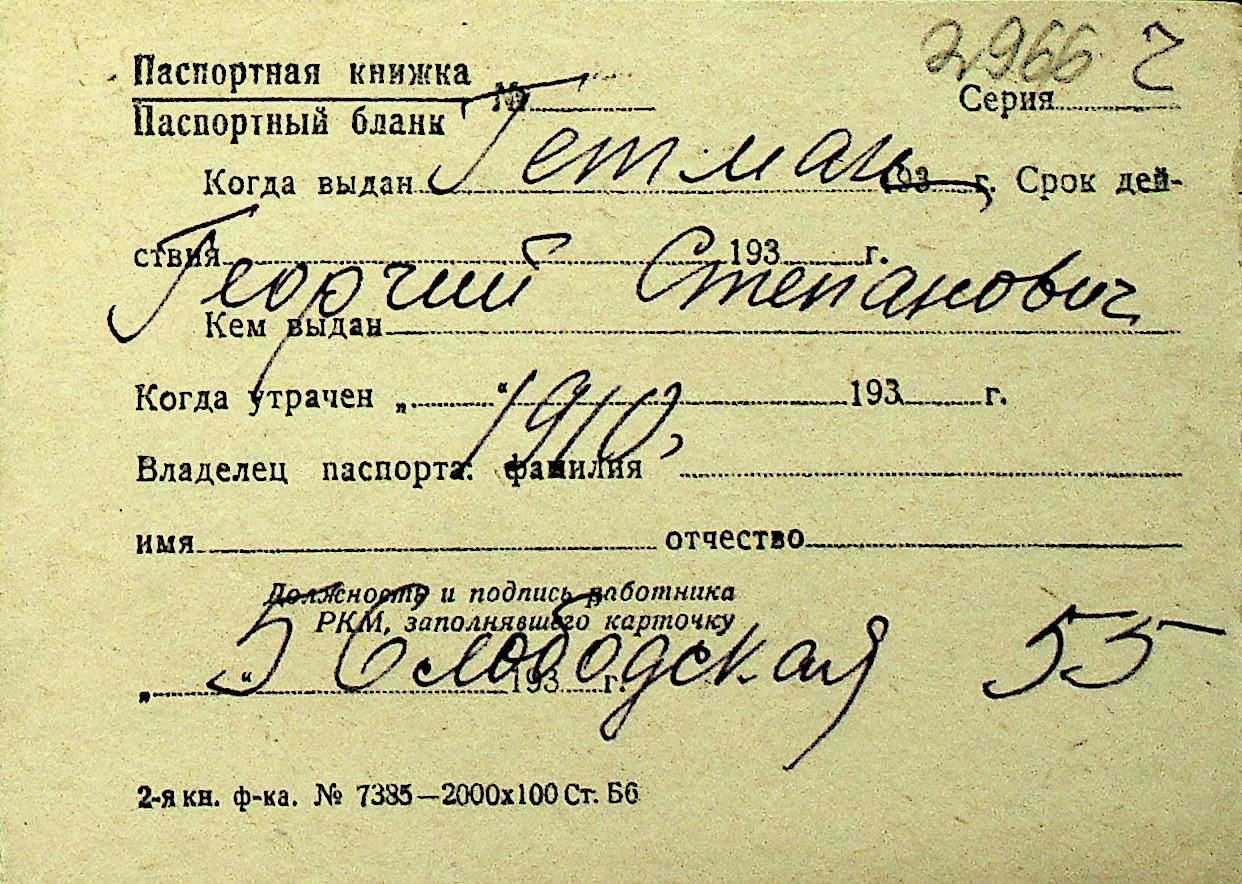 2966 г
Паспортная книжка
Паспортный бланк
№ Серия
Гетман
Когда выдан 193 г. Срок дей-
ствия 193 г.
Георгий Степанович
Кем выдан
Когда утрачен „ “ 193 г.
1910,
Владелец паспорта: фамилия
имя отчество
Должность и подпись работника
РКМ, заполнявшего карточку
5 Слободская 55
„ “ 193 г.
2-я кн. ф-ка. № 7385—2000х100 Ст. Б6